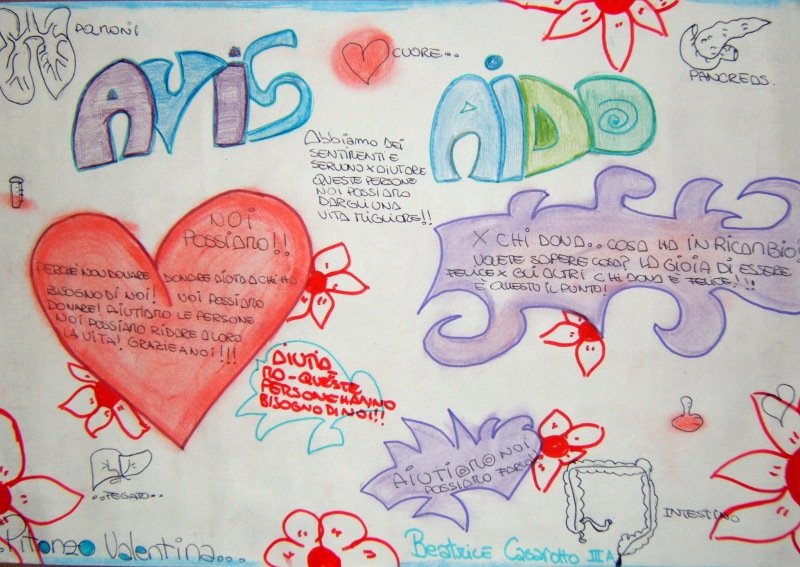 POLMONI
AVIS
CUORE...
AIDO
PANCREAS.
Abbiamo DEI
SENTIMENTI E
SERVONO X AIUTARE
QUESTE PERSONE
NOI POSSIAMO
DARGLI UNA
VITA MIGLIORE!!
NOI
POSSIAMO!!
PERCHÈ NON DONARE DONARE AIUTA CHI HA
BISOGNO DI NOI! NOI POSSIAMO
DONARE! AIUTIAMO LE PERSONE
NOI POSSIAMO RIDARE A LORO
LA VITA! GRAZIE A NOI!!!
X CHI DONA.. COSA HA IN RICAMBIO?
VOLETE SAPERE COSA? LA GIOIA DI ESSERE
FELICE X GLI ALTRI CHI DONA È FELICE!!!
È QUESTO IL PUNTO!
AIUTIA
MO-QUESTE
PERSONE HANNO
BISOGNO DI NOI!!
AIUTIAMO NOI
POSSIAMO FARCELA
..FEGATO...
INTESTINO
.Pitonzo Valentina...
Beatrice Casarotto III A